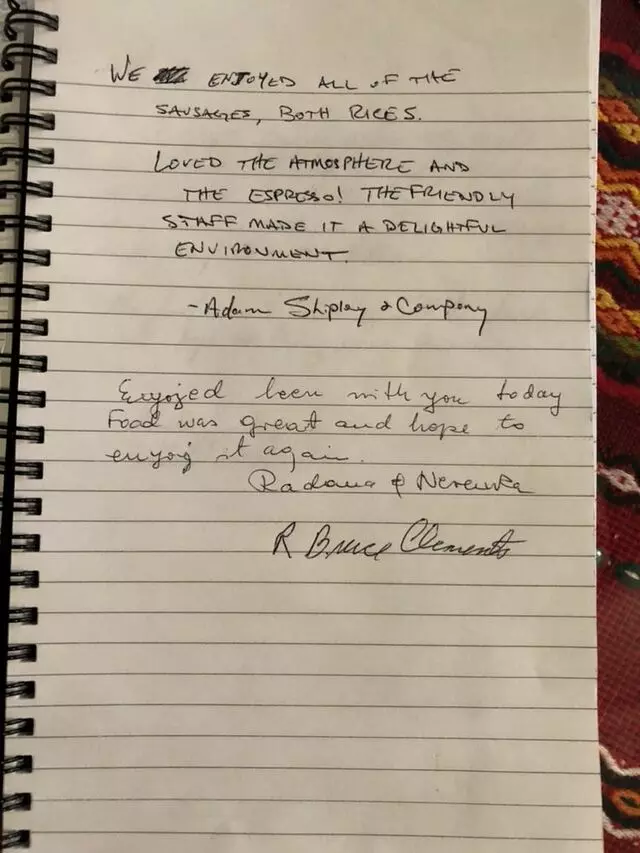 WE ENJOYED ALL OF THE
SAUSAGES, BOTH RICES.
LOVED THE ATMOSPHERE AND
THE ESPRESSO! THE FRIENDLY
STAFF MADE IT A DELIGHTFUL
ENVIRONMENT.
-Adam Shipley & Company
Enjoyed been with you today
Food was great and hope to
enyoj it again.
&
R Bruce Clements